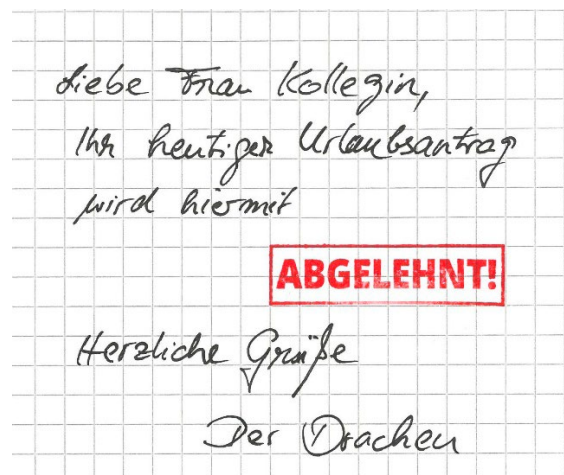 Liebe Frau Kollegin,
Ihr heutiger Urlaubsantrag
wird hiermit
ABGELEHNT!
Herzliche Grüße
Der Drachen